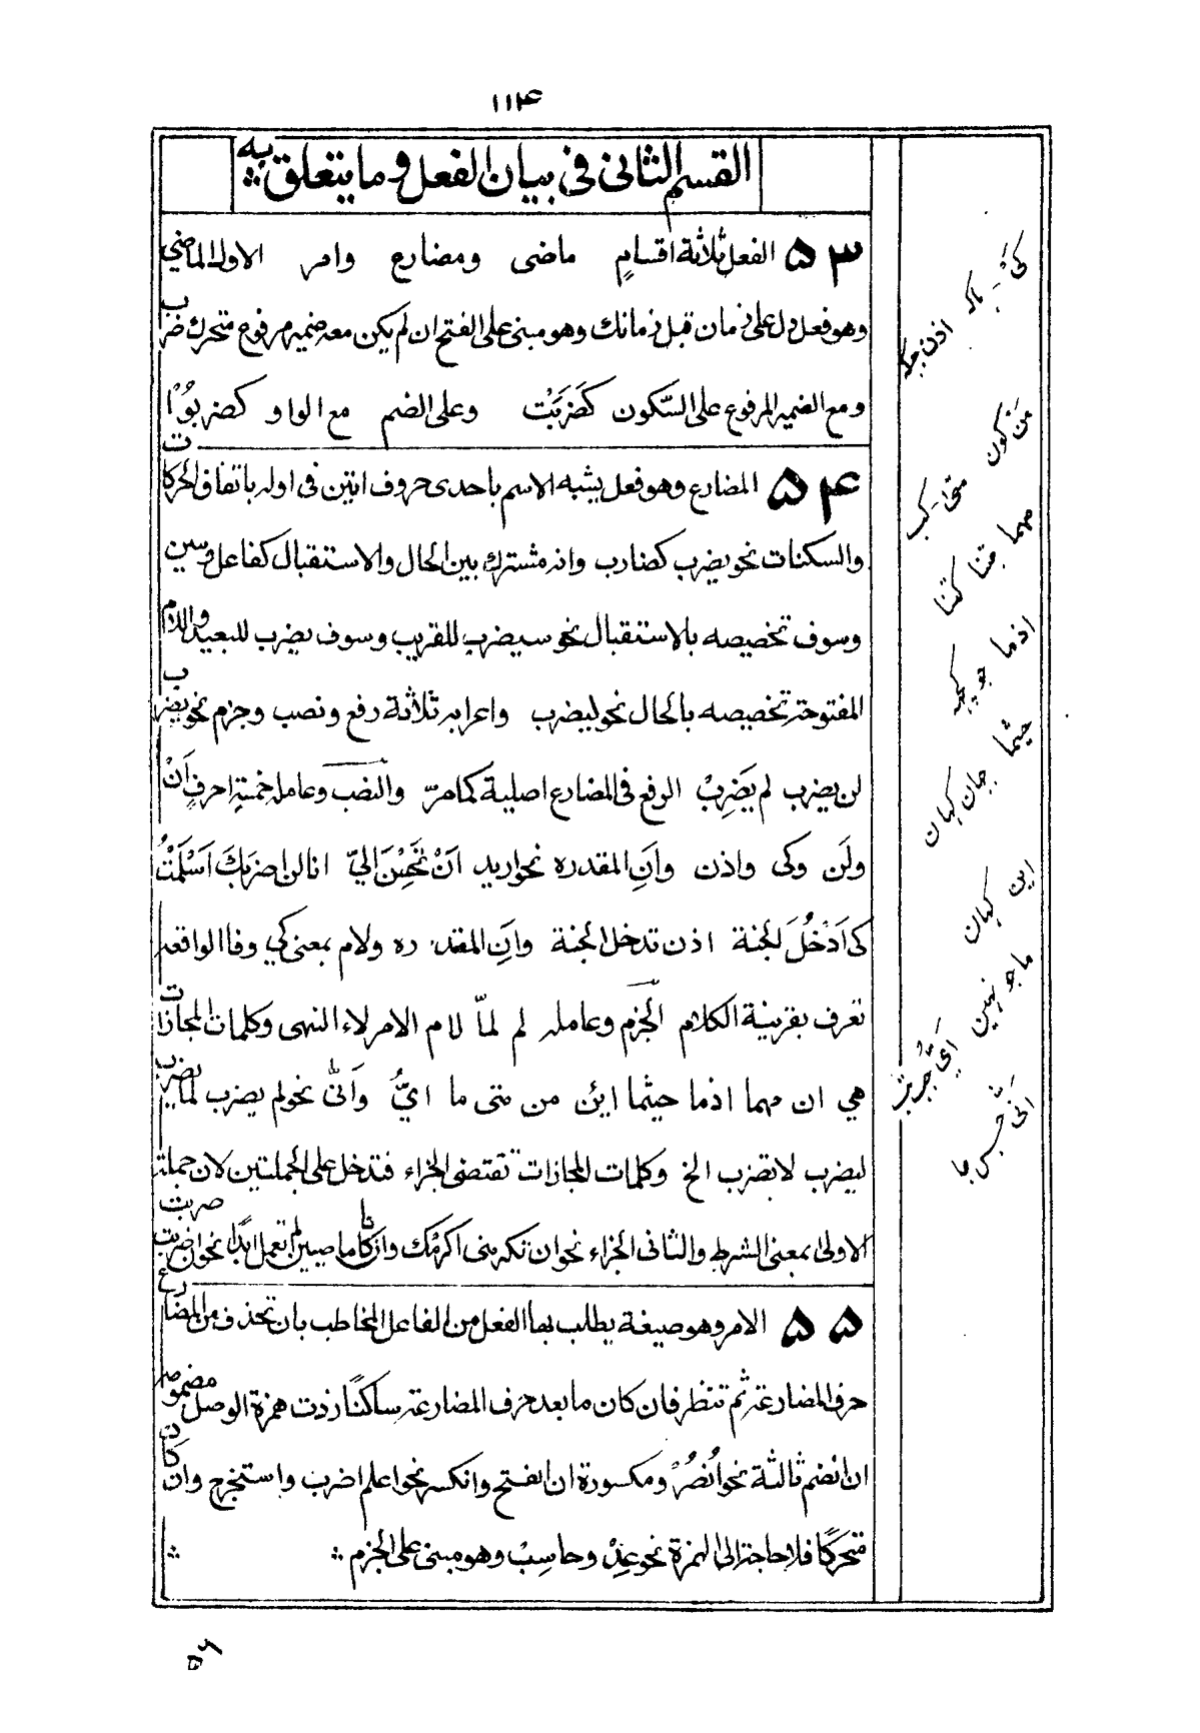 ۱۱۴
القسم الثانی فی بیان الفعل وما یتعلق به
۵۳ الفعل ثلاثة اقسامٍ ماضی ومضارع وامر الاول الماضی
وهو فعل دل علی زمان قبل زمانك وهو مبنی علی الفتح ان لم یکن معه ضمیر مرفوع متحرك ضرب
ومع الضمیر المرفوع علی السّکون کَضَرَبْتَ وعلی الضم مع الواو کضربُوْا
۵۴ المضارع وهو فعل یشبه الاسم باحدی حروف اتین فی اوله باتفاق الحرکات
والسکنات نحو یضرب کضارب وانه مشترك بین الحال والاستقبال کفاعل وسین
وسوف تخصیصه بالاستقبال نحو سیضرب للقریب وسوف یضرب للبعید واللام
المفتوحة تخصیصه بالحال نحو لیضرب واعرابه ثلاثة رفع ونصب وجزم نحو یضرب
لن یضرب لم یَضرِبْ الرفع فی المضارع اصلیة کما مرّ والنصب وعامله خمسة احرفٍ اَنْ
ولَن وکی واذن واَنِ المقدره نحو ارید اَنْ تُحْسِنَ الیّ انا لن اضربَكَ اَسْلَمْتُ
کی اَدْخُلَ لجنة اذن تدخل الجنة واَنِ المقدره ولام بمعنی کی وفا الواقعة
تعرف بقرینة الکلام الجزم وعامله لم لمّا لام الامر لاء النهی وکلمات المجازات
هی ان مهما اذما حیثما این من متی ما ایُّ واَنّٰی نحو لم یضرب لما یضرب
لیضرب لا تضرب الخ وکلمات المجازات تقتضی الجزاء فتدخل علی الجملتین لان جملة
الاولی بمعنی الشرط والثانی الجزاء نحو ان تکرمنی اکرمْك وان کانا ماضیین لم تعمل ابدًا نحو ان ضربت ضربت
۵۵ الامر وهو صیغة یطلب بها الفعل من الفاعل المخاطب بان تحذف من المضارع
حرف المضارعة ثم تنظر فان کان ما بعد حرف المضارعة ساکنًا زدت همزة الوصل مضمومة
ان انضم ثالثة نحو اُنصُرْ ومکسورة ان انفتح وانکسر نحو اعلم اضرب واستخرج وان کان
متحرکًا فلا حاجة الی الهمزة نحو عِدْ وحاسِبْ وهو مبنی علی الجزم
کَیْ تاکه
اذن جکه
مَن کون متی کب
مهما جتنا کتنا
اذما
حیثما جهان کهان
این کهان
ما جو نهین
اَنّٰی جس جا
۵۶